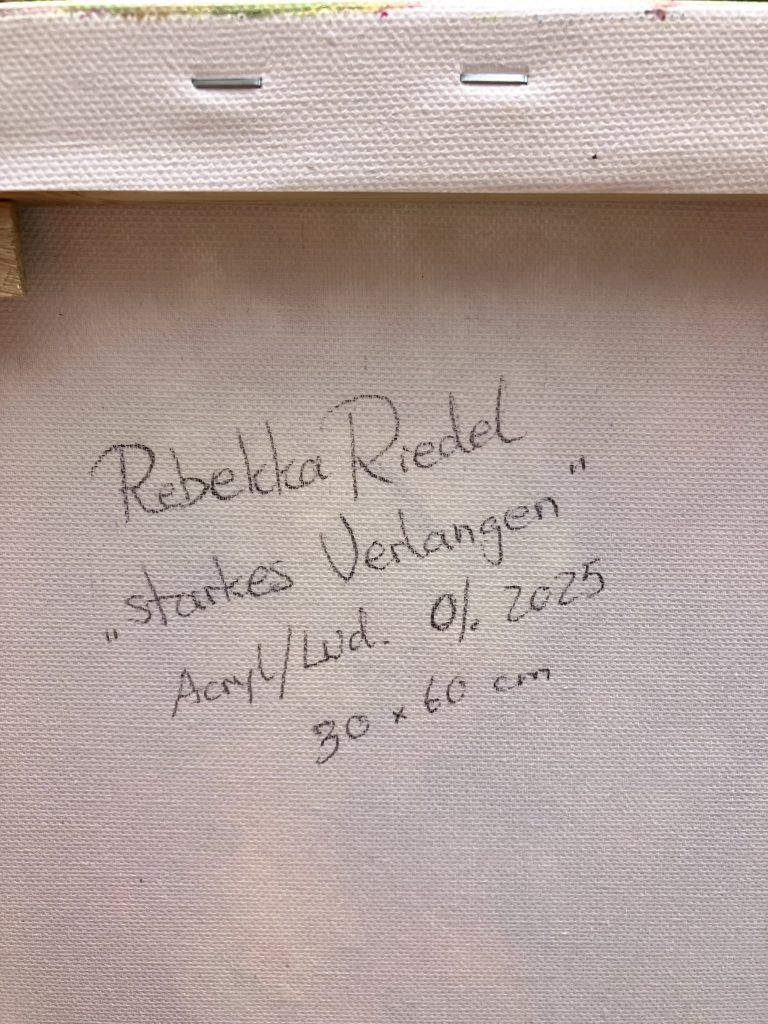 Rebekka Riedel
„starkes Verlangen"
Acryl/Lwd. 2025
30 x 60 cm